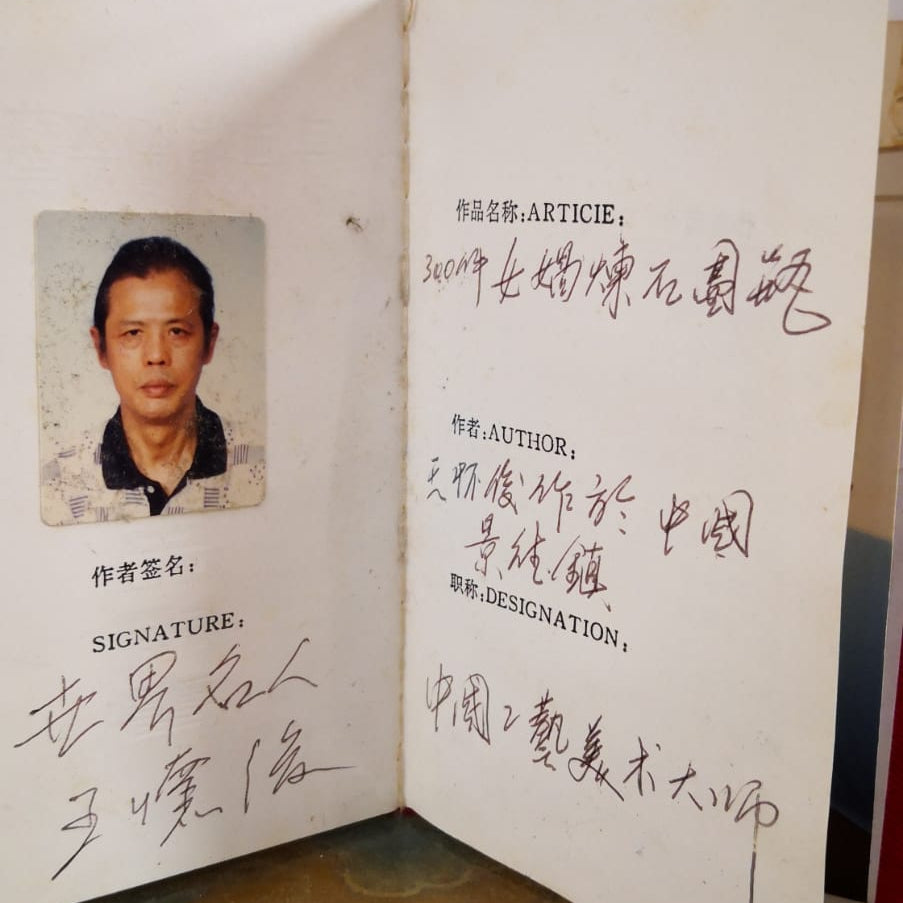 作者签名:
SIGNATURE:
世界名人
王懷俊
作品名称:ARTICIE:
300件女媧煉石圖瓶
作者:AUTHOR:
王怀俊作於 中國
景德鎮
职称:DESIGNATION:
中國工藝美术大师